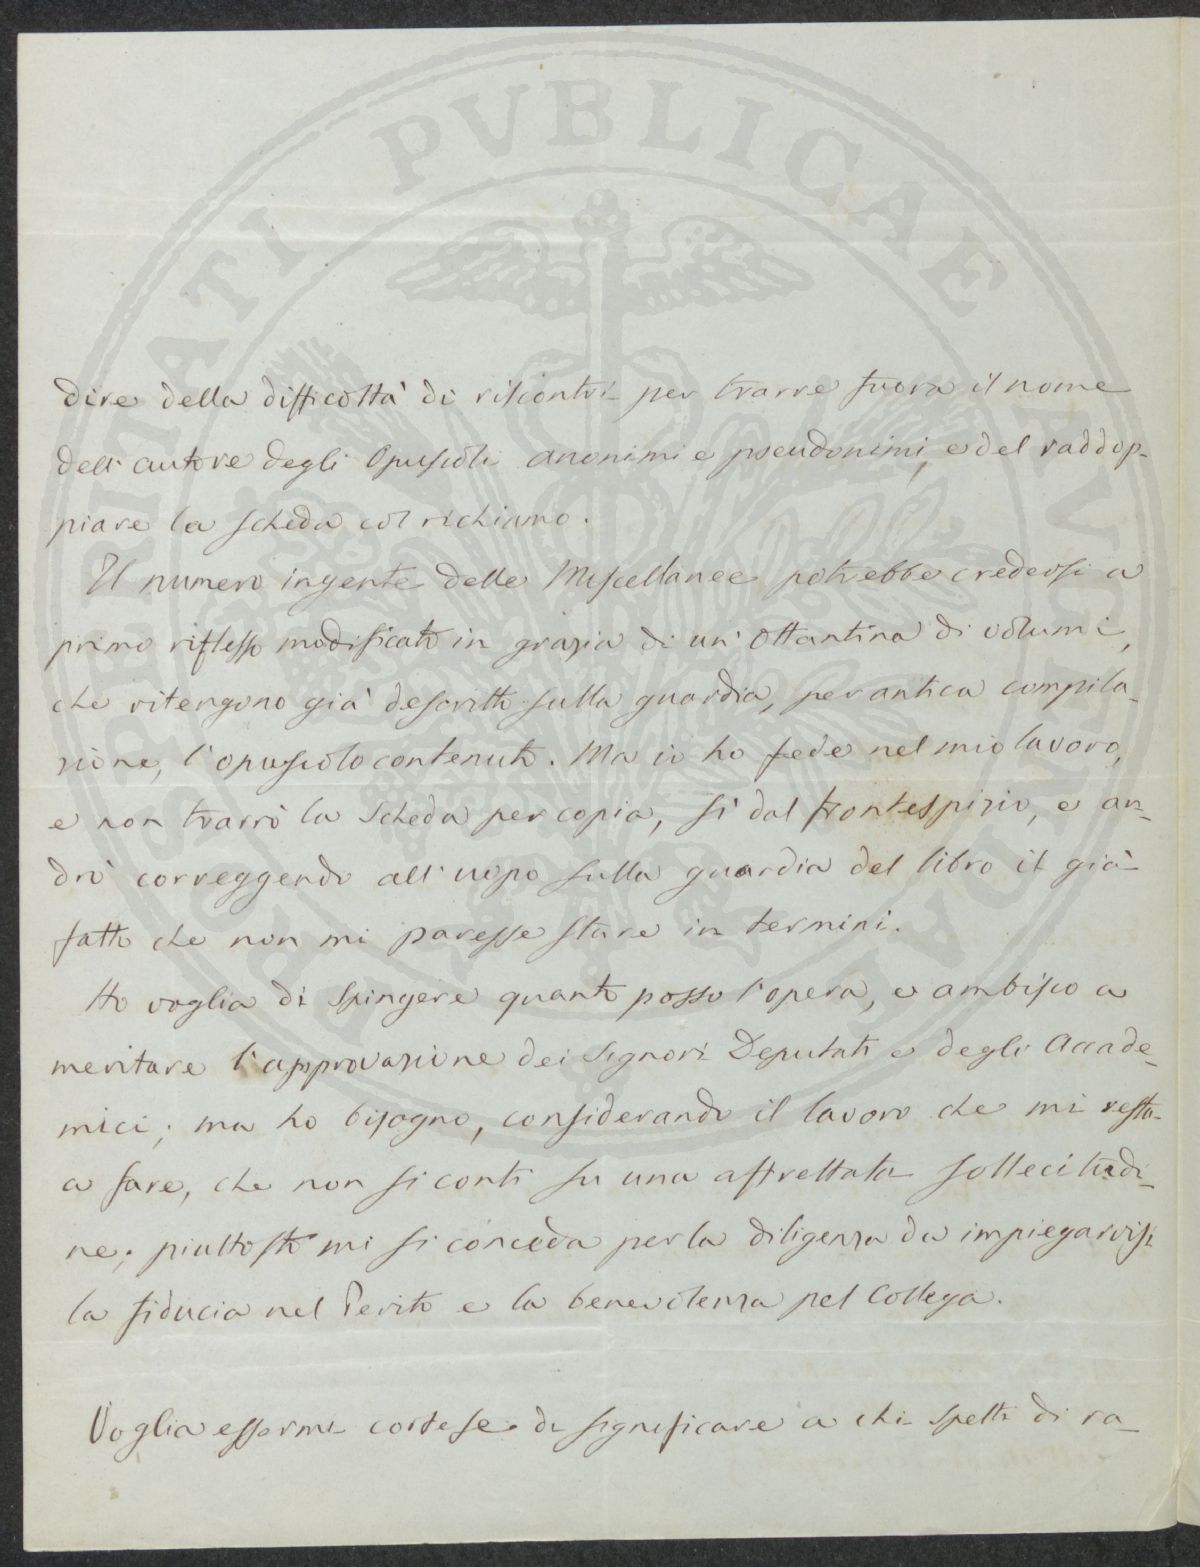 PROSPERITATI PVBLICAE AVGENDAE
dire della difficoltà di riscontri per trarre fuora il nome
dell'autore degli Opuscoli anonimi e pseudonimi, e del raddop-
piare la scheda col richiamo.
Il numero ingente delle Miscellanee potrebbe credersi a
primo riflesso modificato in grazia di un' Ottantina di volumi,
che ritengono già descritto sulla guardia, per antica compila-
zione, l'opuscolo contenuto. Ma io ho fede nel mio lavoro,
e non trarrò la scheda per copia, sì dal frontespizio, e an-
drò correggendo all'uopo sulla guardia del libro il già
fatto che non mi paresse stare in termini.
Ho voglia di spingere quanto posso l'opera, e ambisco a
meritare l'approvazione dei Signori Deputati e degli Accade-
mici; ma ho bisogno, considerando il lavoro che mi resta
a fare, che non si conti su una affrettata sollecitudi-
ne; piuttosto mi si conceda per la diligenza da impiegarvisi
la fiducia nel Perito e la benevolenza pel Collega.
Voglia essermi cortese di significare a chi spetti di ra-